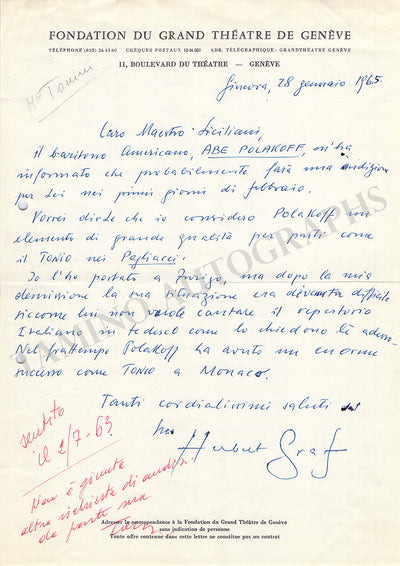 FONDATION DU GRAND THÉATRE DE GENÈVE
TÉLÉPHONE (022) 26 43 60 CHÈQUES POSTAUX 12-16 051 ADR. TÉLÉGRAPHIQUE: GRANDTHÉATRE GENÈVE
11, BOULEVARD DU THÉATRE — GENÈVE
Ginevra, 28 gennaio 1965
Caro Maestro Siciliani,
il baritono Americano, ABE POLAKOFF, m'ha
informato che probabilmente farà una audizione
per Lei nei primi giorni di febbraio.
Vorrei dirle che io considero Polakoff un
elemento di grande qualità per parti come
il TONIO nei Pagliacci.
Io l'ho portato a Zurigo, ma dopo la mia
demissione la sua situazione era divenuta difficile
siccome lui non vuole cantare il repertorio
Italiano in tedesco come lo chiedono là adesso.
Nel frattempo Polakoff ha avuto un enorme
successo come TONIO a Monaco.
TAMINO AUTOGRAPHS
Tanti cordialissimi saluti
Herbert Graf
sentito
il 2/7-63
Non è giunta
altra richiesta di audiz.
da parte sua
Adresser la correspondance à la Fondation du Grand Théâtre de Genève
sans indication de personne
Toute offre contenue dans cette lettre ne constitue pas un contrat